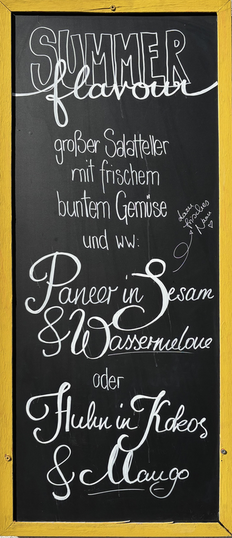 SUMMER
flavour
großer Salatteller
mit frischem
buntem Gemüse
und ww:
dazu
frisches
Naan
Paneer in Sesam
& Wassermelone
oder
Huhn in Kokos
& Mango